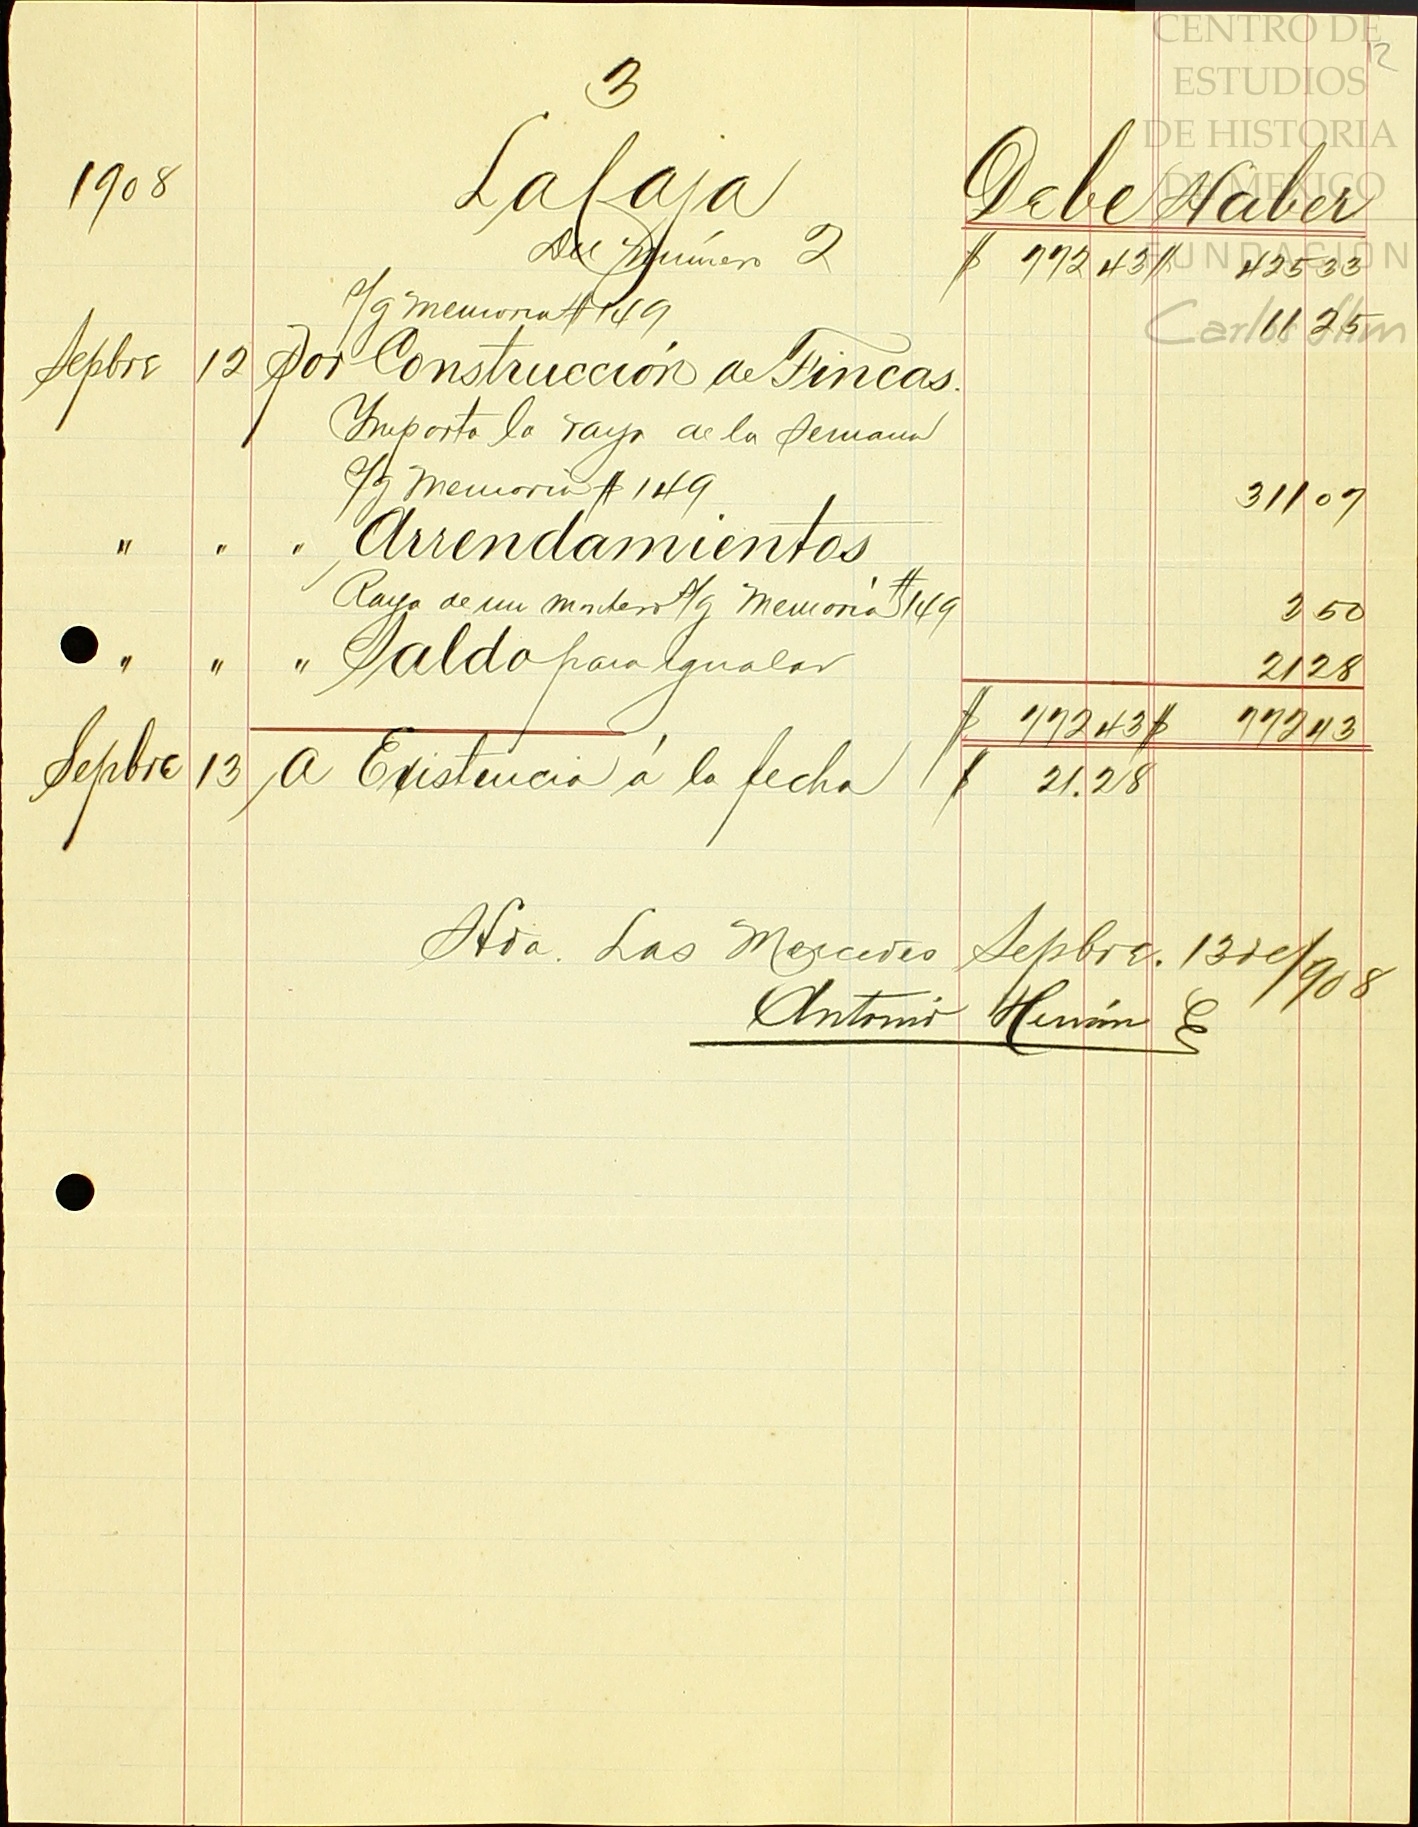 CENTRO DE
ESTUDIOS
DE HISTORIA
DE MÉXICO
FUNDACIÓN
Carlos Slim
12
3
1908 La Caja Debe Haber
Del número 2 $ 772 43 $ 425 33
s/g Memoria # 149 11 25
Sepbre 12 Por Construcción de Fincas.
Importa la raya de la Semana
s/g Memoria # 149 311 07
" " " Arrendamientos
Raya de un montero s/g Memoria # 149 2 50
" " " Saldo para igualar 21 28
$ 772 43 $ 772 43
Sepbre 13 A Existencia á la fecha $ 21.28
Hda. Las Mercedes Sepbre. 13 de/908
Antonio